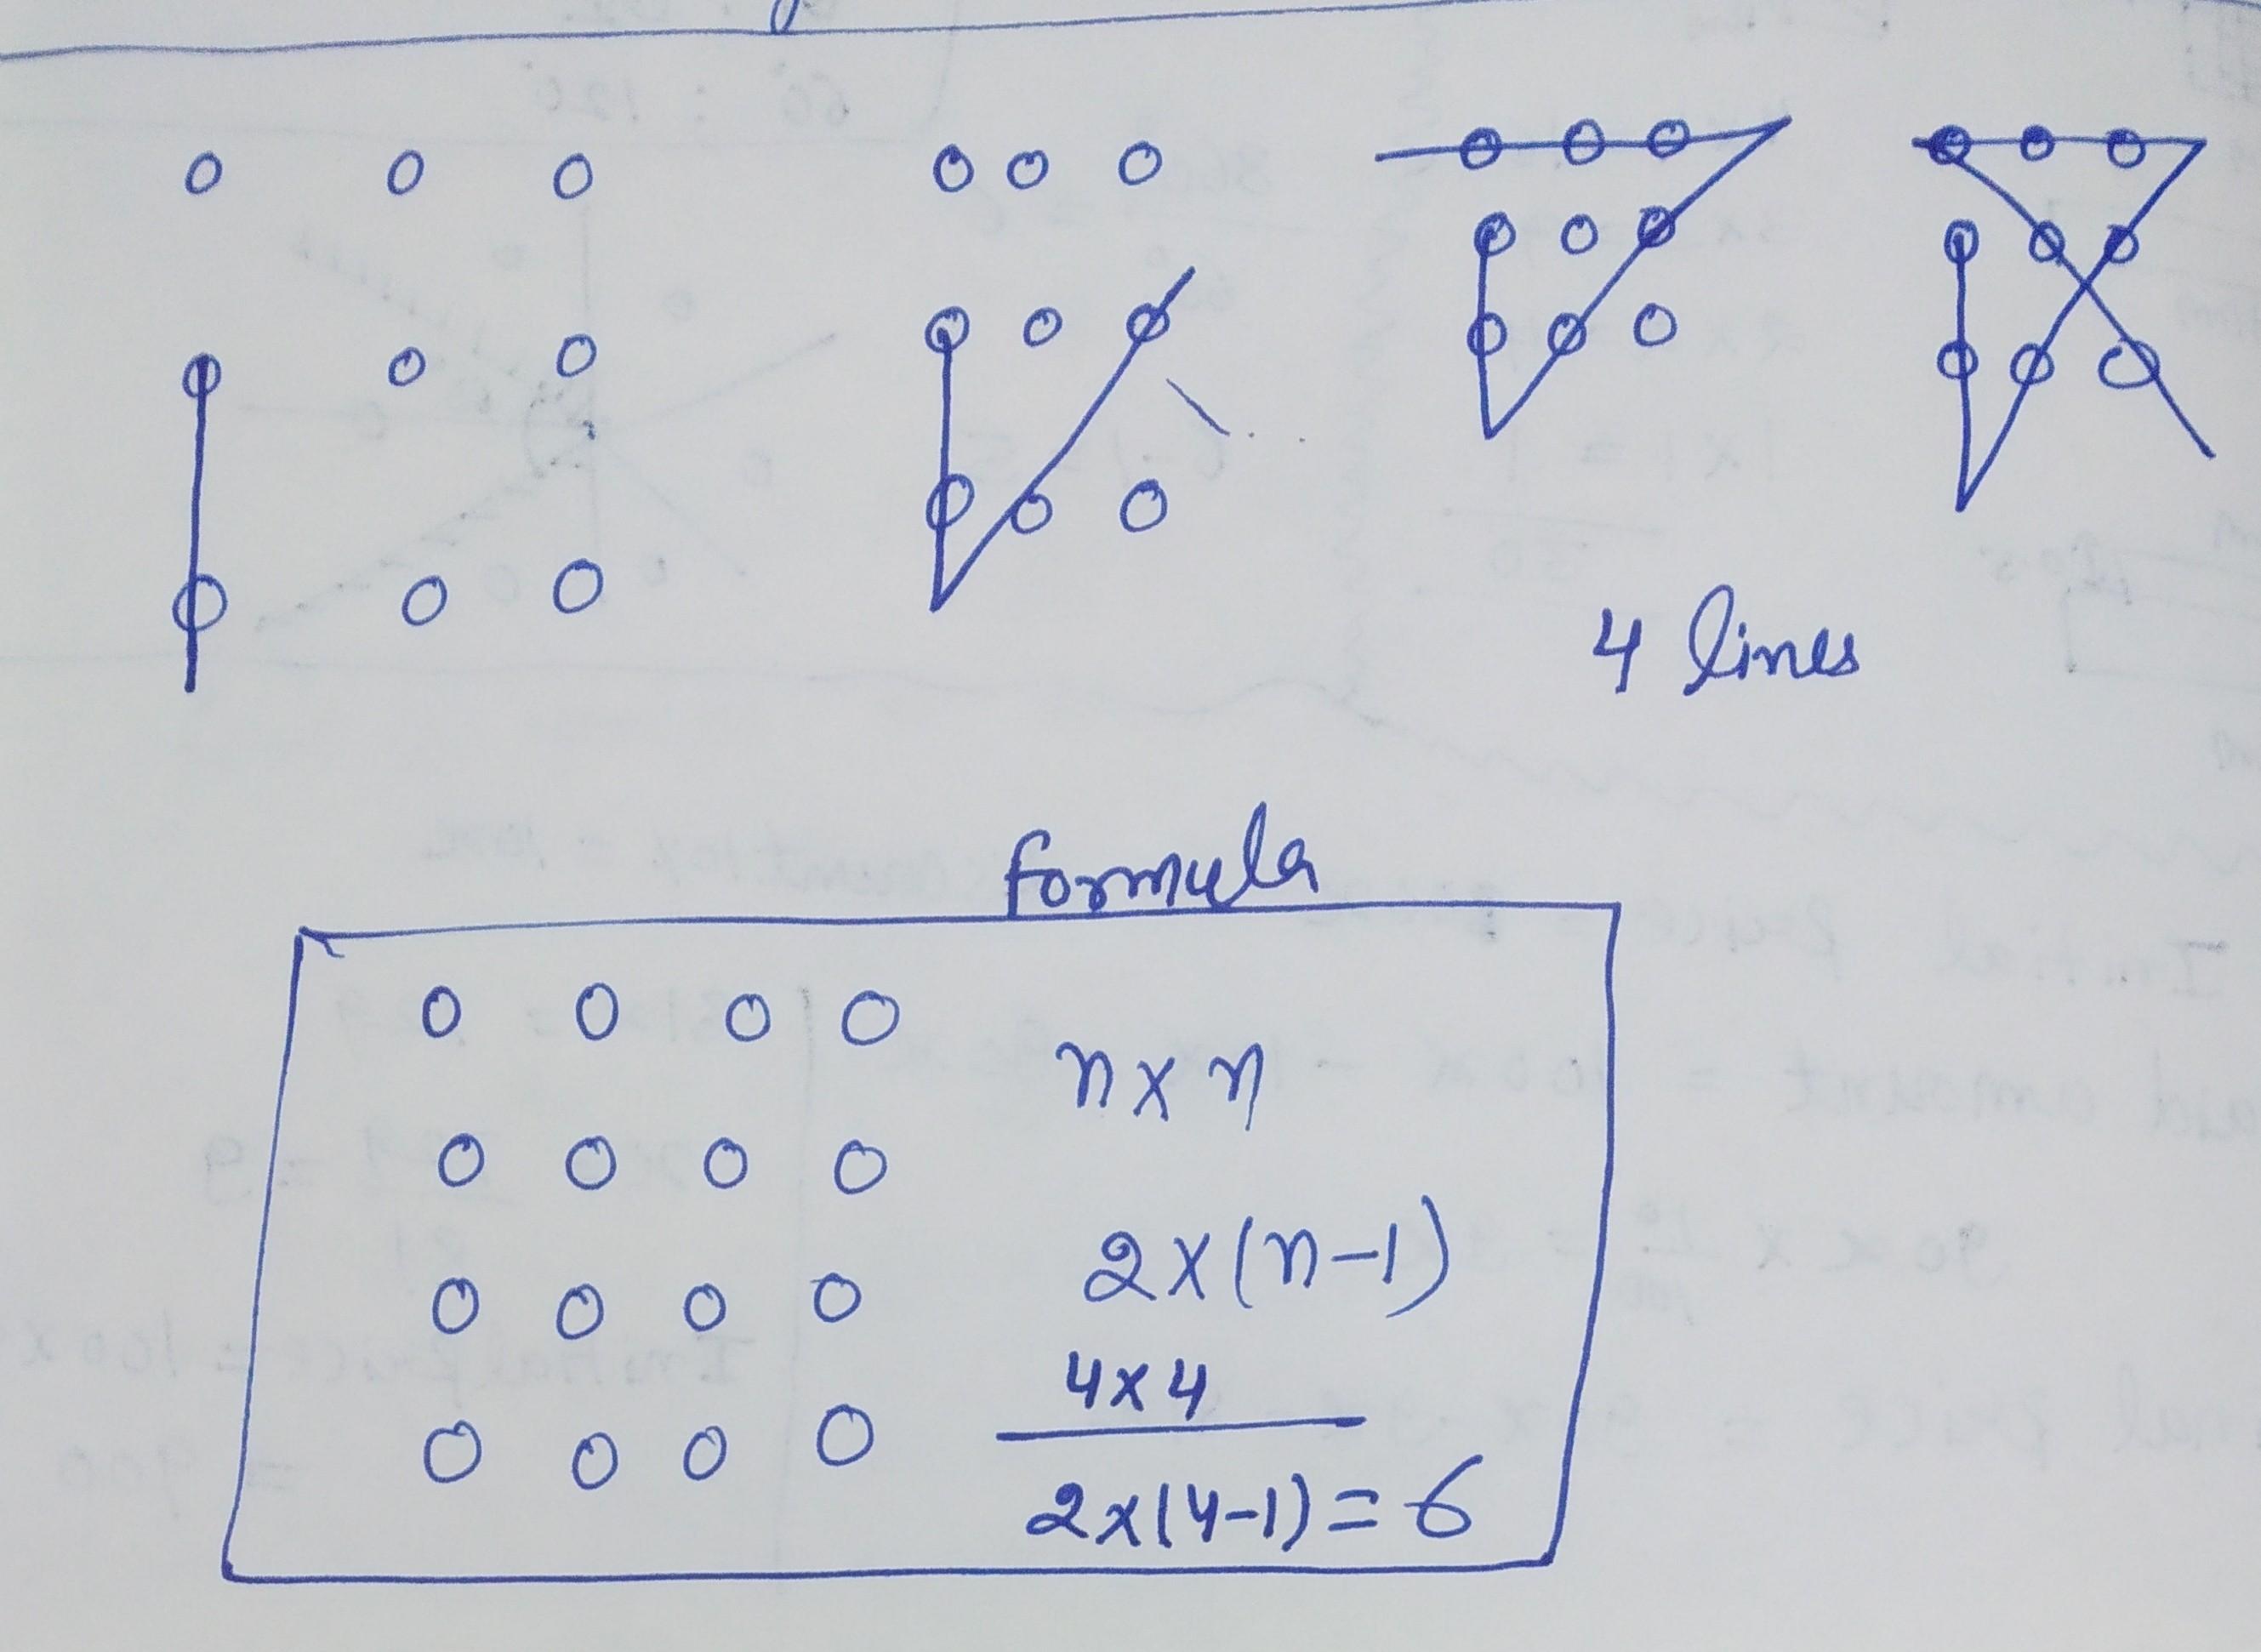 4 lines
formula
n x n
2 x (n-1)
4 x 4
2 x (4-1) = 6